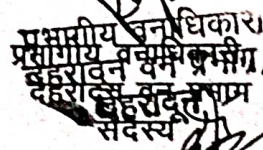 प्रभागीय वनाधिकारी
प्रभागीय वनाधिकारी
देहरादून वन प्रभाग,
देहरादून वन प्रभाग
देहरादून
सदस्य